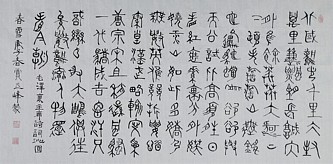 北國風光千里冰
封萬里雪飄望長城
內外惟餘莽莽大河
上下頓失滔滔山
舞銀蛇原馳蠟象
欲與天公試比高
須晴日看紅裝素裹
分外妖嬈江山如此多
嬌引無數英雄競折
腰惜秦皇漢武略輸文采
唐宗宋祖稍遜風騷
一代天驕成吉思汗
只識彎弓射大雕
俱往矣數風流人物還
看今朝 毛澤東主席詩詞沁園
春雪